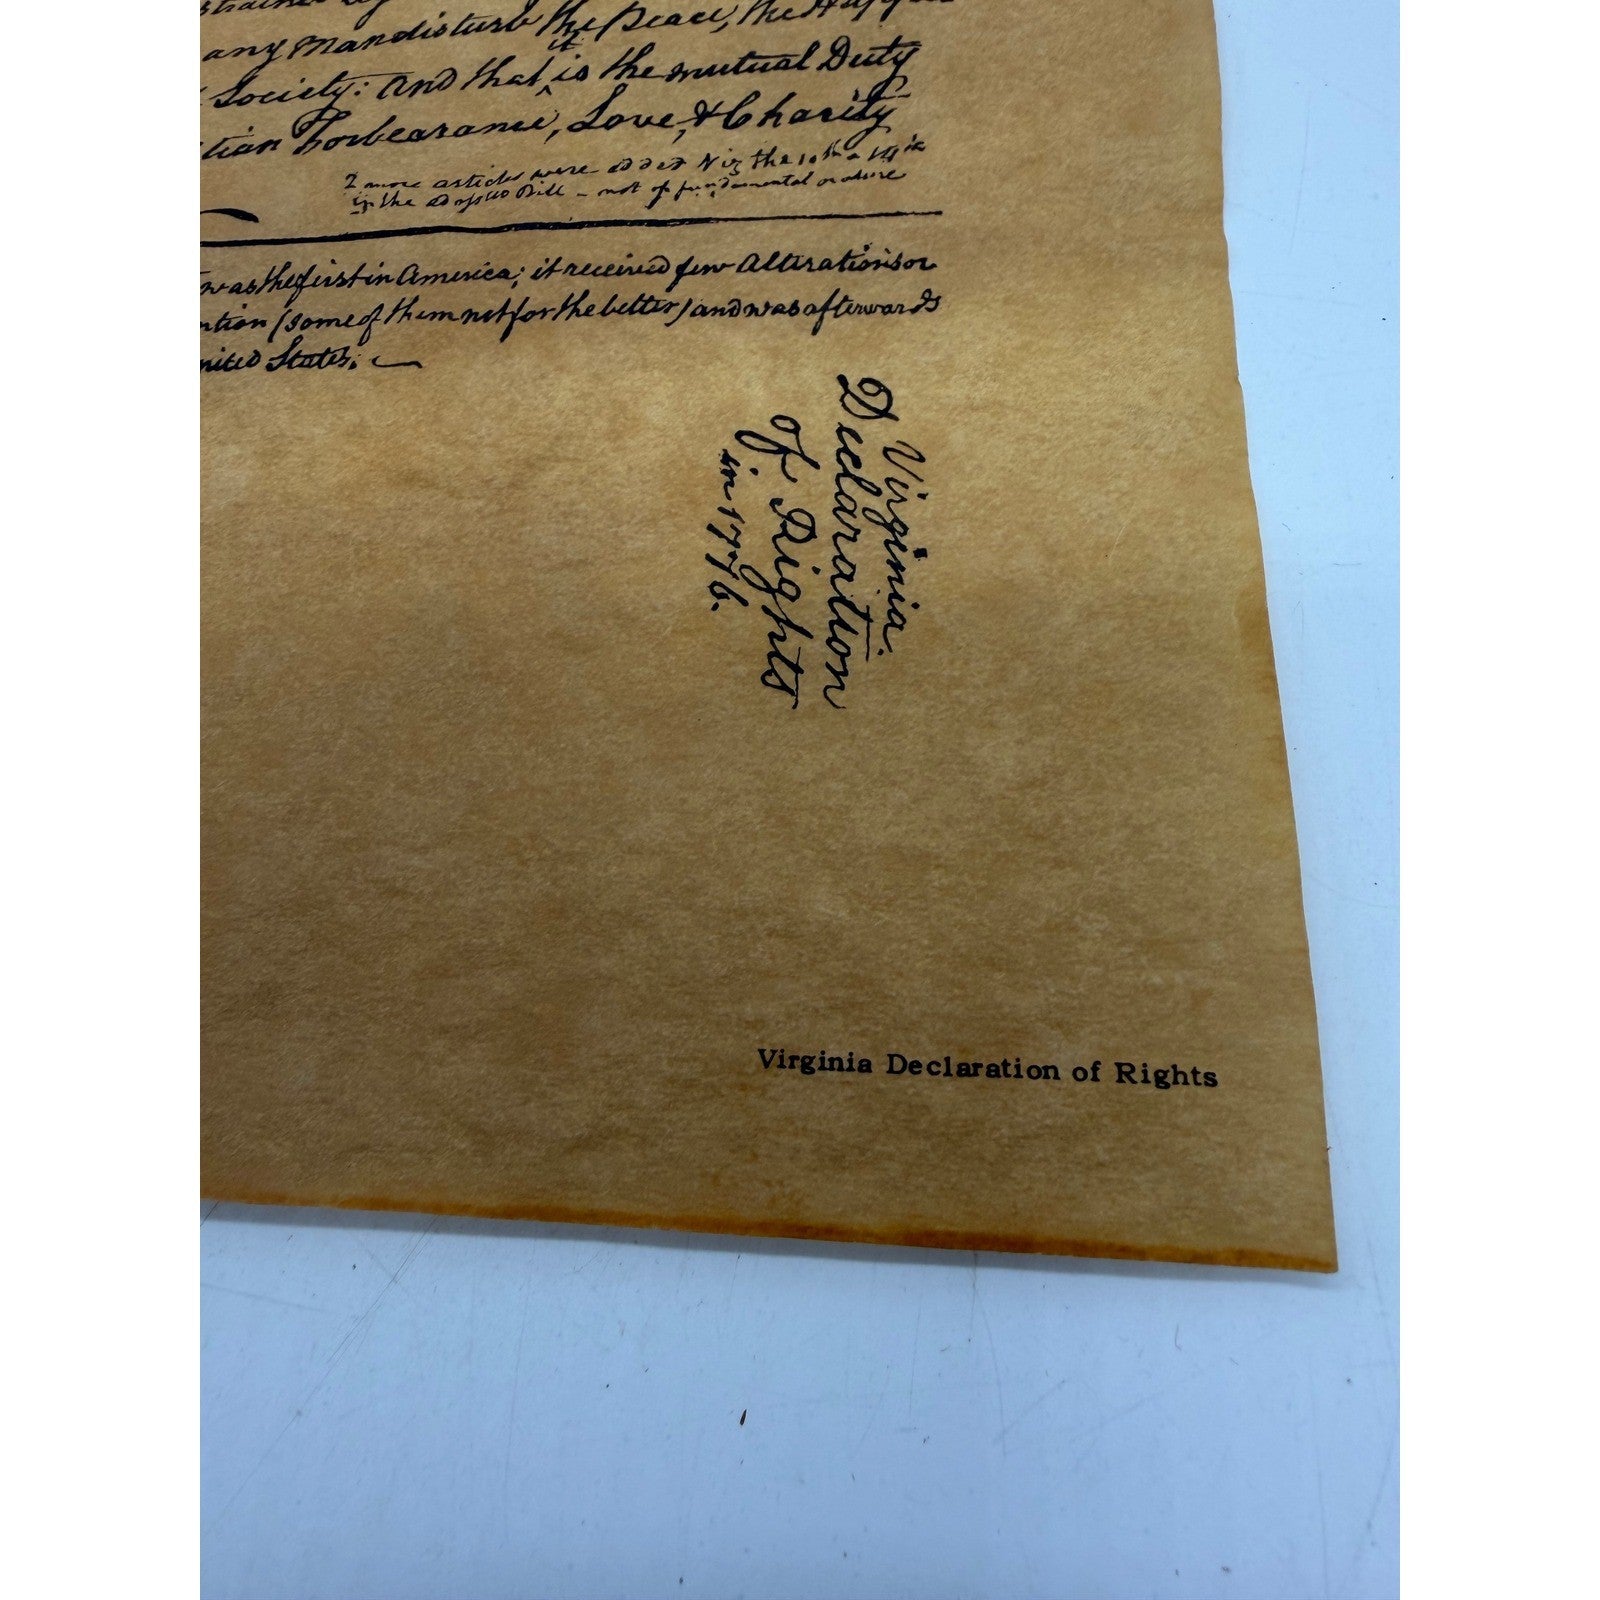 any Man disturb the Peace, the
Society: And that it is the mutual Duty
tian Forbearance, Love, & Charity
2 more articles were added viz the 10th & 14th
in the adopted Bill - not of fundamental nature
was the first in America; it received few Alterations or
ntion (some of them not for the better) and was afterwards
nited States.
Virginia.
Declaration
of Rights
in 1776.
Virginia Declaration of Rights